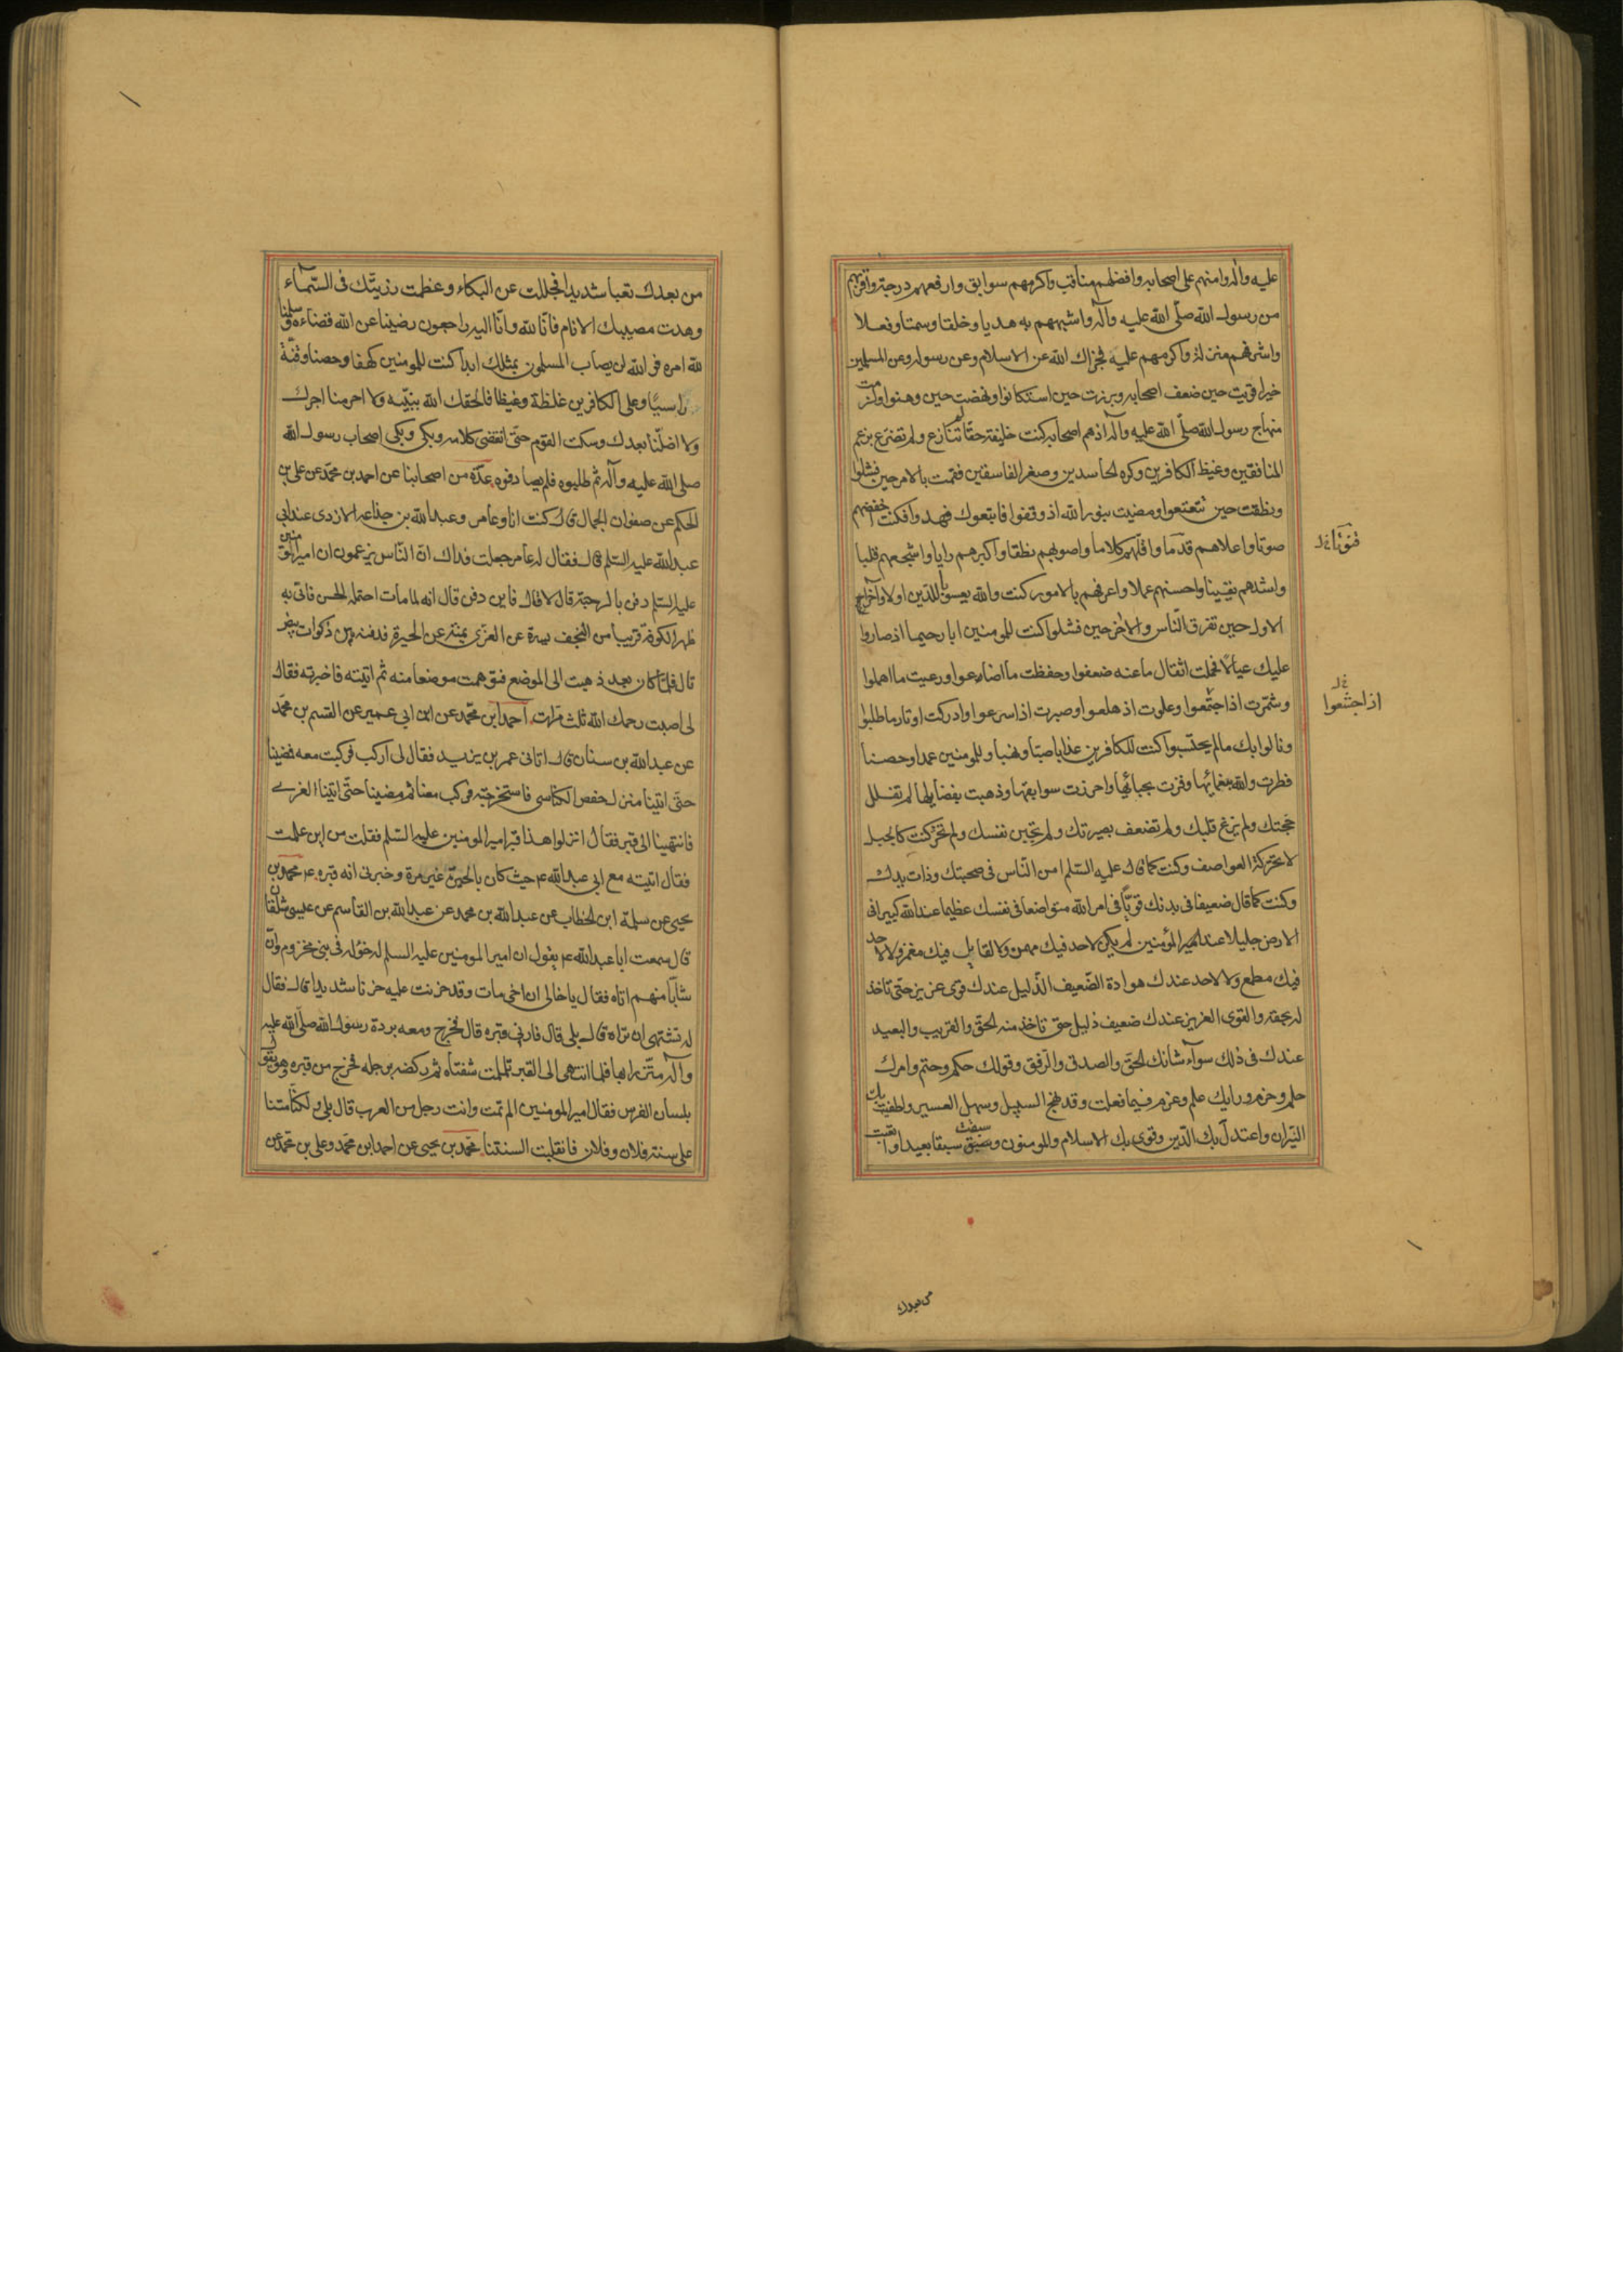 عليه وآله وامنهم على اصحابه وافضلهم مناقب واكرمهم سوابق وارفعهم درجة واقربهم
من رسول الله صلّى الله عليه وآله واشبههم به هديا وخلقا وسمتا وفعلا
واشرفهم منزلة واكرمهم عليه فجزاك الله عن الاسلام وعن رسوله وعن المسلمين
خيرا قويت حين ضعف اصحابه وبرزت حين استكانوا ونهضت حين وهنوا ولزمت
منهاج رسول الله صلّى الله عليه وآله اذ هم اصحابه كنت خليفته حقّا لم تنازع ولم تضرع بزعم
المنافقين وغيظ الكافرين وكره الحاسدين وصغر الفاسقين فقمت بالامر حين فشلوا
ونطقت حين تتعتعوا ومضيت بنور الله اذ وقفوا فاتبعوك فهدوا فكنت اخفضهم
صوتا واعلاهم قدما واقلهم كلاما واصوبهم نطقا واكبرهم رايا واشجعهم قلبا
قنوتا خ ل
واشدهم يقينا واحسنهم عملا واعرفهم بالامور كنت والله يعسوبا للدّين اولا وآخرا
الاول حين تفرق النّاس والاخر حين فشلوا كنت للمومنين ابا رحيما اذ صاروا
عليك عيالا فحملت اثقال ما عنه ضعفوا وحفظت ما اضاعوا ورعيت ما اهملوا
وشمّرت اذ اجتمعوا وعلوت اذ هلعوا وصبرت اذ اسرعوا وادركت اوتار ما طلبوا
خ ل
اذا جشعوا
ونالوا بك ما لم يحتسبوا كنت للكافرين عذابا صبّا ونهبا وللمومنين عمدا وحصنا
فطرت والله بغمائها وفزت بحبائها واحرزت سوابقها وذهبت بفضايلها لم تفلل
حجتك ولم يزغ قلبك ولم تضعف بصيرتك ولم تجبن نفسك ولم تخر كنت كالجبل
لا تحركه العواصف وكنت كما قال عليه السّلم امن النّاس في صحبتك وذات يدك
وكنت كما قال ضعيفا في بدنك قويّا في امر الله متواضعا في نفسك عظيما عند الله كبيرا في
الارض جليلا عند المؤمنين لم يكن لاحد فيك مهمز ولا لقايل فيك مغمز ولا لاحد
فيك مطمع ولا لاحد عندك هوادة الضّعيف الذّليل عندك قوى عزيز حتّى تاخذ
له بحقه والقوى العزيز عندك ضعيف ذليل حتى تاخذ منه الحقّ والقريب والبعيد
عندك في ذلك سواء شانك الحقّ والصدق والرّفق وقولك حكم وحتم وامرك
حلم وحزم ورايك علم وعزم فيما فعلت وقد نهج السبيل وسهل العسير واطفيت بك
النّيران واعتدل بك الدّين وقوى بك الاسلام والمومنون وسبقت سبقا بعيدا واتعبت
من بعدك
من بعدك تعبا شديدا فجللت عن البكاء وعظمت رزيتّك في السّماء
وهدت مصيبتك الانام فانّا لله وانّا اليه راجعون رضينا عن الله قضاءه وسلمنا
لله امره فو الله لن يصاب المسلمون بمثلك ابدا كنت للمومنين كهفا وحصنا وقنّة
راسيا وعلى الكافرين غلظة وغيظا فالحقك الله بنبيّه ولا احرمنا اجرك
ولا اضلّنا بعدك وسكت القوم حتّى انقضى كلامه وبكى وبكى اصحاب رسول الله
صلى الله عليه وآله ثم طلبوه فلم يصادفوه عدّة من اصحابنا عن احمد بن محمّد عن على بن
الحكم عن صفوان الجمال قال كنت انا وعامر وعبد الله بن جذاعه الازدى عند ابى
عبد الله عليه السّلم قال فقال له عامر جعلت فداك انّ النّاس يزعمون ان امير المومنين
عليه السّلم دفن بالرحبة قال لا قال فاين دفن قال انه لما مات احتمله الحسن فاتى به
ظهر الكوفة قريبا من النّجف يسرة عن الغرّى يمنة عن الحيرة فدفنه بين ذكوات بيض
قال فلمّا كان بعد ذهبت الى الموضع فتوهمت موضعا منه ثم اتيته فاخبرته فقال
لى اصبت رحمك الله ثلث مرّات احمد بن محمّد عن ابن ابى عمير عن القسم بن محمّد
عن عبد الله بن سنان قال اتانى عمر بن يزيد فقال لى اركب فركبت معه فمضينا
حتّى اتينا منزل حفص الكناسى فاستخرجته فركب معنا ثم مضينا حتّى اتينا الغرى
فانتهينا الى قبر فقال انزلوا هذا قبر امير المومنين عليه السّلم فقلت من اين علمت
فقال اتيته مع ابى عبد الله ع حيث كان بالحيرة غير مرة وخبرنى انه قبره ع محمد بن
يحيى عن سلمة ابن الخطاب عن عبد الله بن محمد عن عبد الله بن القاسم عن عيسى شلقان
قال سمعت ابا عبد الله ع يقول ان امير المومنين عليه السلم له خؤلة في بنى مخزوم وانّ
شابّا منهم اتاه فقال يا خالى ان اخى مات وقد حزنت عليه حزنا شديدا قال فقال
له تشتهى ان تراه قال بلى قال فارنى قبره قال فخرج ومعه بردة رسول الله صلّى الله عليه
وآله متّزرا بها فلما انتهى الى القبر تلملمت شفتاه ثم ركضه برجله فخرج من قبره وهو يقول
بلسان الفرس فقال امير المومنين الم تمت وانت رجل من العرب قال بلى ولكنّا متنا
على سنة فلان وفلان فانقلبت السنتنا محمّد بن يحيى عن احمد ابن محمّد وعلى بن محمّد عن